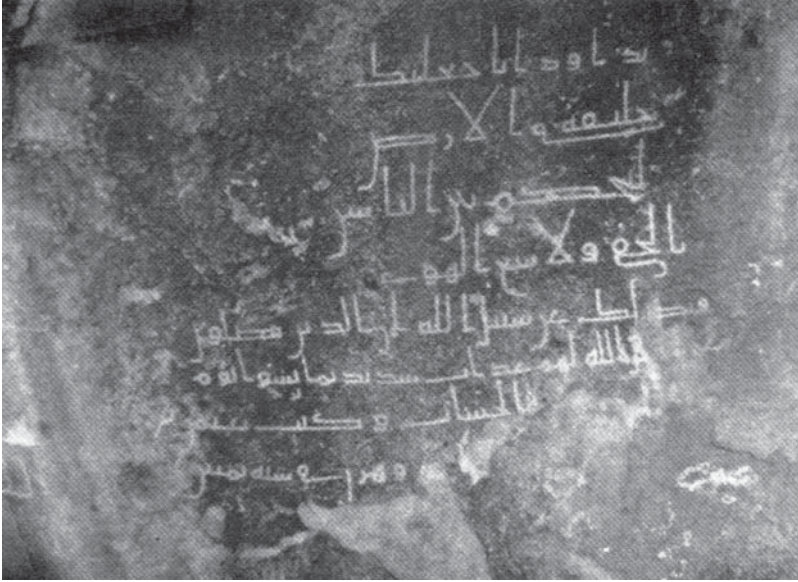 يداود انا جعلنك
خليفة في الارض
لتحكم بين الناس
بالحق ولا تتبع الهوى
فيضلك عن سبيل الله ان الذين يضلون
الله لهم عذاب شديد بما نسوا يوم
الحساب وكتب
ثمنين